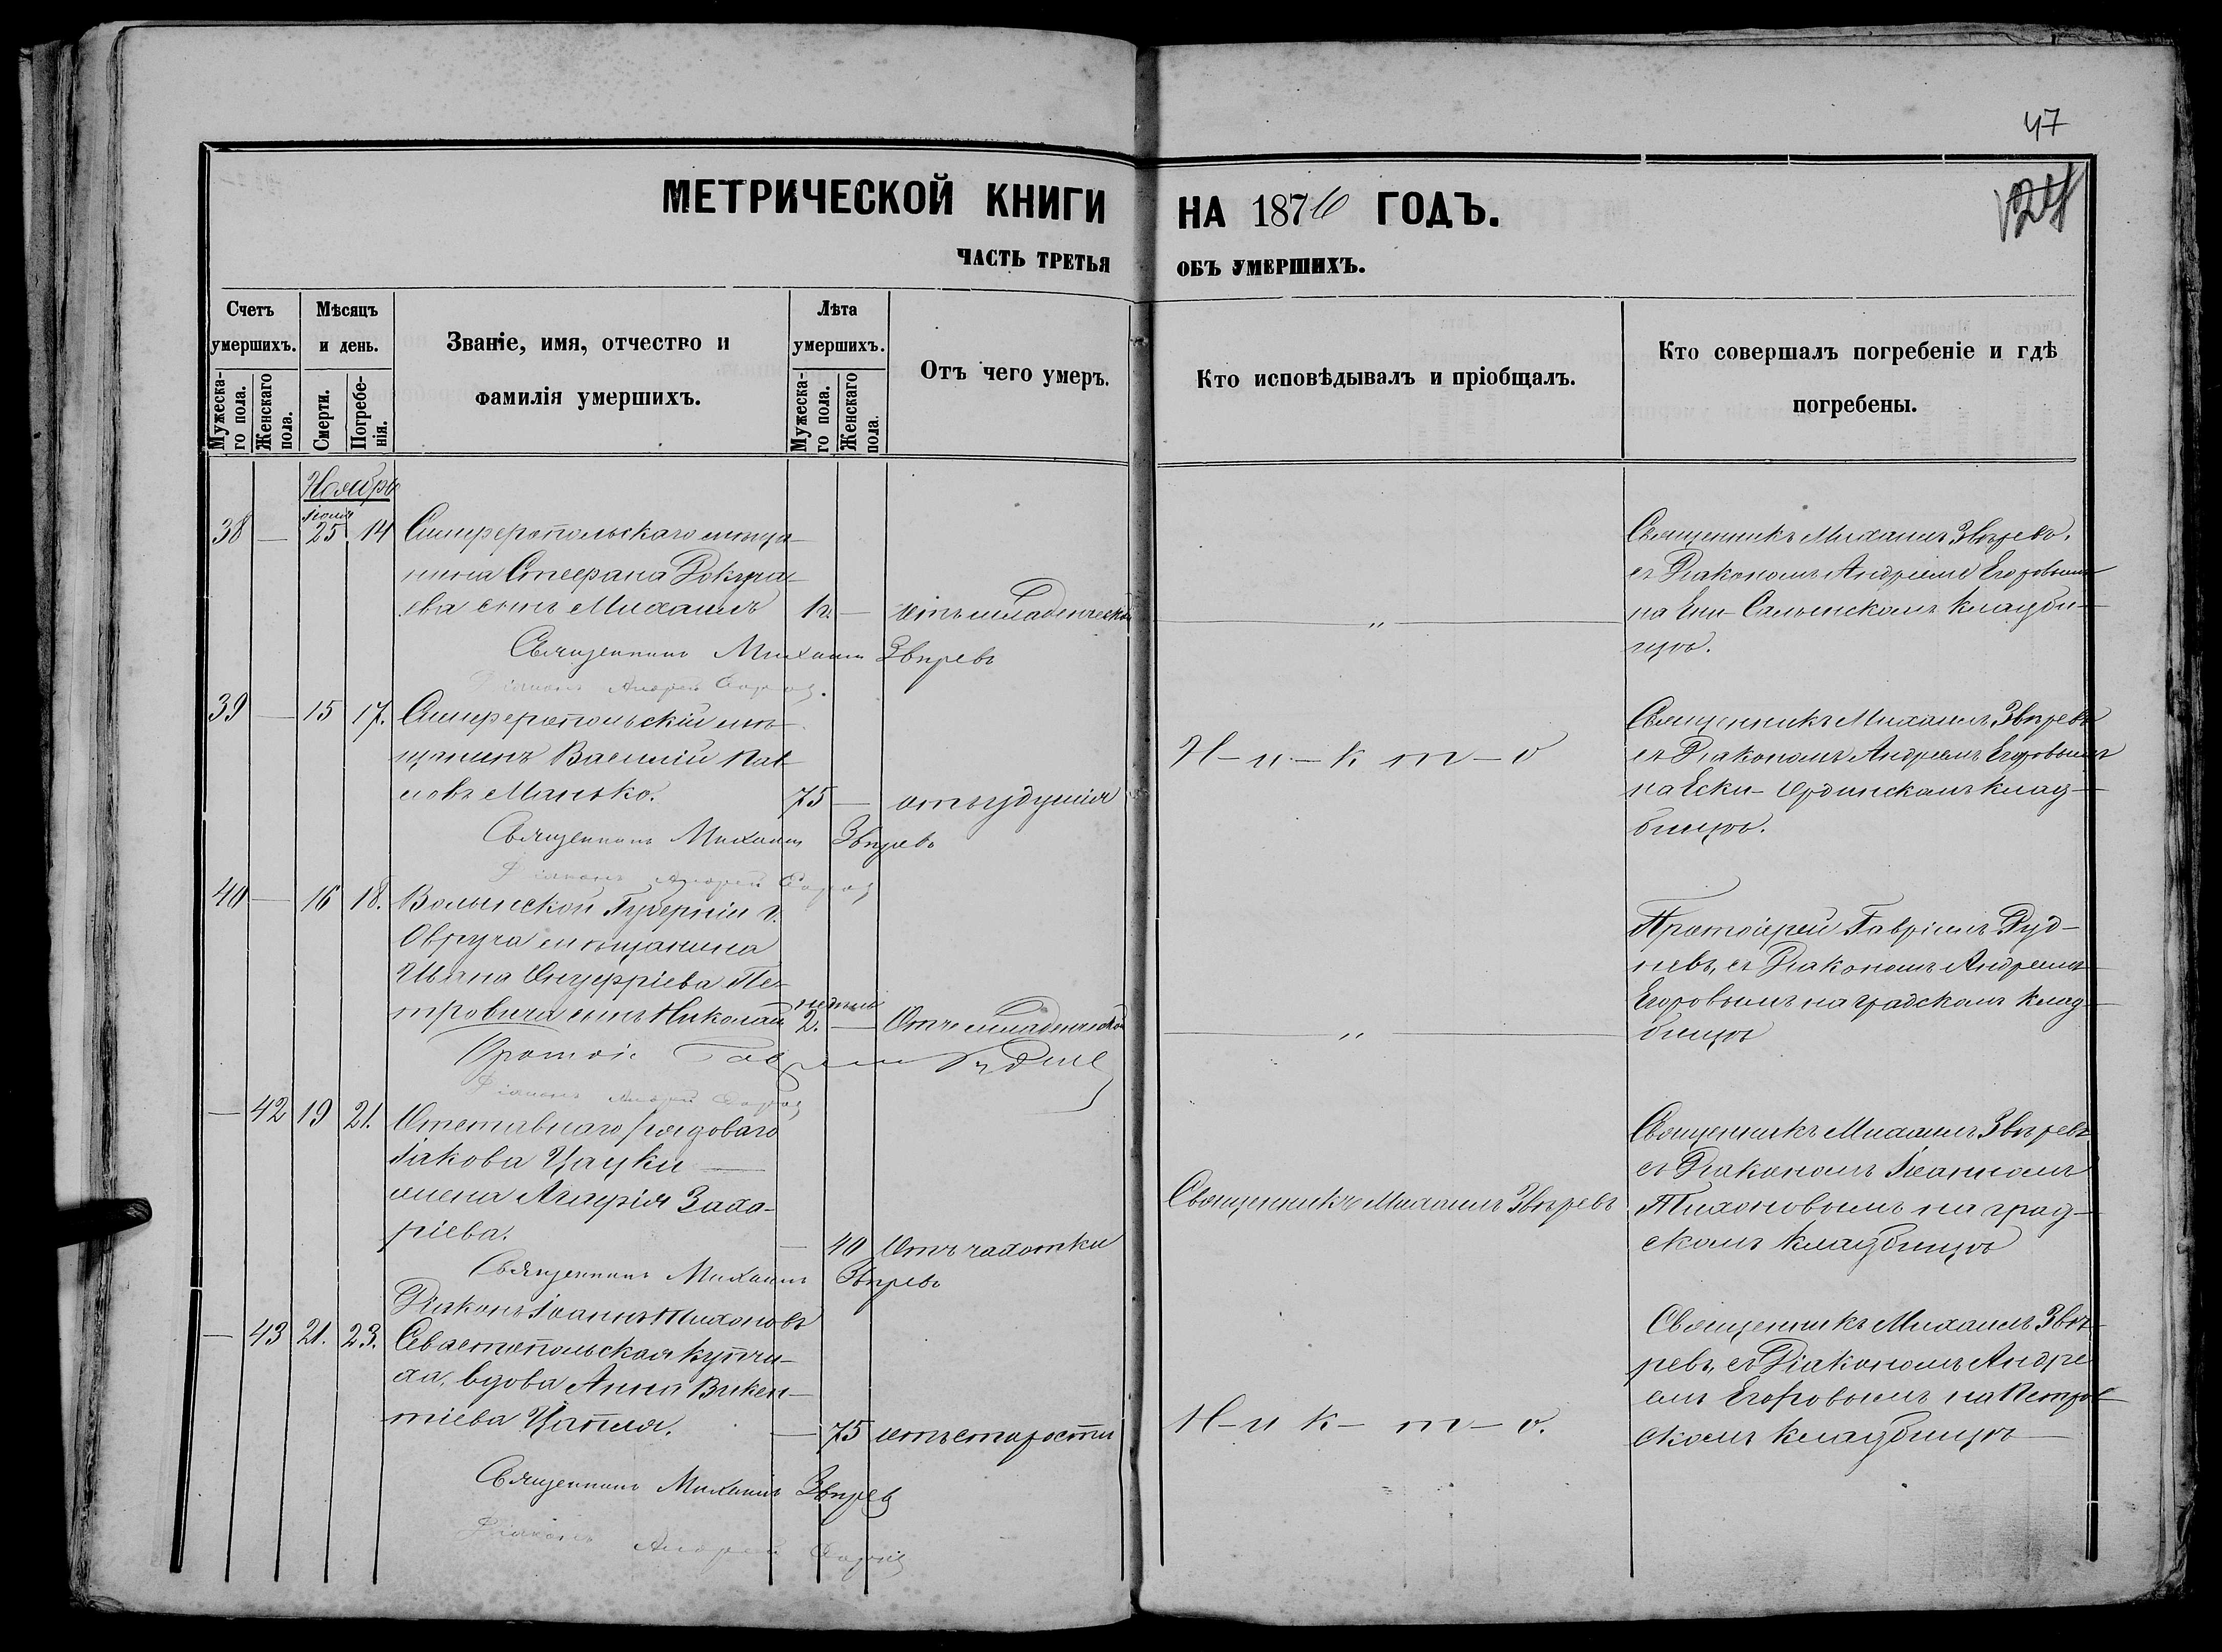 47
МЕТРИЧЕСКОЙ КНИГИ НА 1876 ГОДЪ.
ЧАСТЬ ТРЕТЬЯ ОБЪ УМЕРШИХЪ.
Счетъ умершихъ.
Мужеска-го пола.
Женскаго пола.
Мѣсяцъ и день.
Смерти.
Погребе-нія.
Званіе, имя, отчество и фамилія умершихъ.
Лѣта умершихъ.
Мужеска-го пола.
Женскаго пола.
Отъ чего умеръ.
Кто исповѣдывалъ и пріобщалъ.
Кто совершалъ погребеніе и гдѣ погребены.
Ноябрь
38 — 25 14 Симферопольскаго мѣща-
нина Стефана Докуча-
ева сынъ Михаилъ — отъ младенческой
Священникъ Михаилъ Звѣревъ
Діаконъ Андрей
Священникъ Михаилъ Звѣревъ,
съ Діакономъ Андреемъ Егоровымъ
на Ени-Сальскомъ кладби-
щѣ.
39 — 15 17. Симферопольскій мѣ-
щанинъ Василій Пав-
ловъ Манько. 75 — отъ удушія
Священникъ Михаилъ Звѣревъ
Діаконъ Андрей
Н-и-к т-о
Священникъ Михаилъ Звѣревъ
съ Діакономъ Андреемъ Егоровымъ
на Ески-Ординскомъ клад-
бищѣ.
40 — 16 18. Волынской Губерніи г.
Овруча мѣщанина
Ивана Онуфріева Пе-
тровича сынъ Николай недѣли 2. — Отъ младенческой
Протоіе Гавріилъ Рудне
Діаконъ Андрей
Протоіерей Гавріилъ Руд-
невъ, съ Діакономъ Андреемъ
Егоровымъ на градскомъ клад-
бищѣ
— 42 19 21. Отставнаго рядоваго
Іакова Цацки
жена Агафія Заха-
ріева. — 40 Отъ чахотки
Священникъ Михаилъ Звѣревъ
Діаконъ Іоаннъ Тихоновъ
Священникъ Михаилъ Звѣревъ
Священникъ Михаилъ Звѣревъ
съ Діакономъ Іоанномъ
Тихоновымъ на град-
скомъ кладбищѣ
— 43 21. 23. Севастопольская купчи-
ха, вдова Анна Викен-
тіева Цапля. — 75 отъ старости
Священникъ Михаилъ Звѣревъ
Діаконъ Андрей
Н-и к- т-о.
Священникъ Михаилъ Звѣ-
ревъ, съ Діакономъ Андре-
емъ Егоровымъ на Петров-
скомъ кладбищѣ